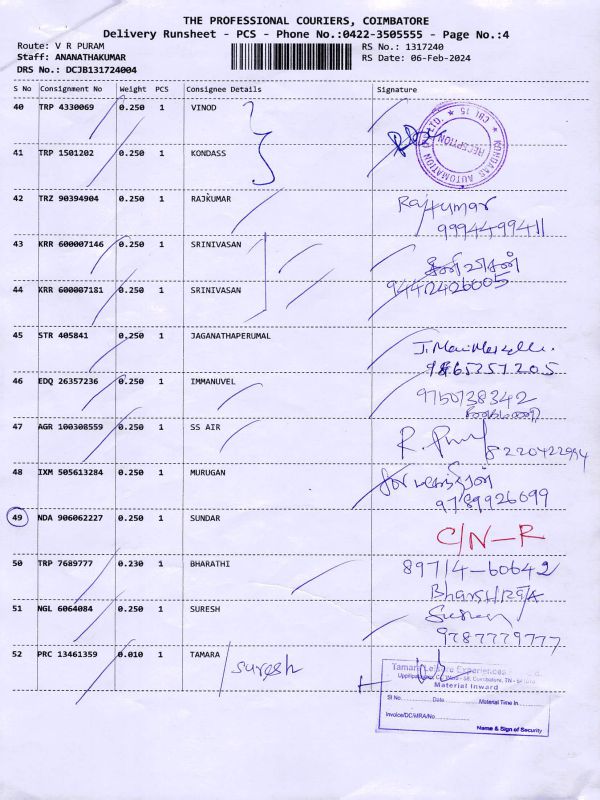 THE PROFESSIONAL COURIERS, COIMBATORE
Delivery Runsheet - PCS - Phone No.:0422-3505555 - Page No.:4
Route: V R PURAM
Staff: ANANATHAKUMAR
DRS No.: DCJB131724004
RS No.: 1317240
RS Date: 06-Feb-2024
S No Consignment No Weight PCS Consignee Details Signature
40 TRP 4330069 0.250 1 VINOD
KONDAAS AUTOMATION LTD. CBE 15
RECEPTION
41 TRP 1501202 0.250 1 KONDASS
42 TRZ 90394904 0.250 1 RAJKUMAR Rajkumar
9994499411
43 KRR 600007146 0.250 1 SRINIVASAN
44 KRR 600007181 0.250 1 SRINIVASAN 9442426005
45 STR 405841 0.250 1 JAGANATHAPERUMAL
46 EDQ 26357236 0.250 1 IMMANUVEL 9750738342
47 AGR 100308559 0.250 1 SS AIR 8220422994
48 IXM 505613284 0.250 1 MURUGAN
9789926099
49 NDA 906062227 0.250 1 SUNDAR C/N-R
50 TRP 7689777 0.230 1 BHARATHI 89714-60642
51 NGL 6064084 0.250 1 SURESH
9787779777
52 PRC 13461359 0.010 1 TAMARA Suresh
Tamara Leisure Experiences
Material Inward
Sl No. Date Material Time In
Invoice/DC/MRA/No
Name & Sign of Security